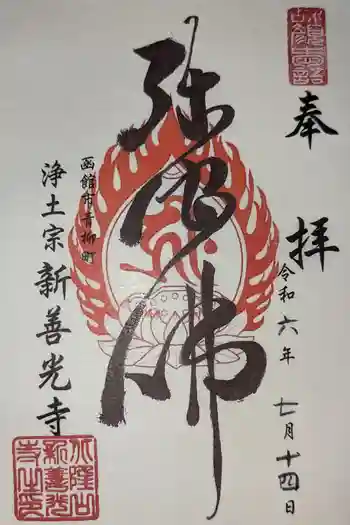 奉拝
令和六年 七月十四日
弥陀佛
函館市青柳町
浄土宗 新善光寺